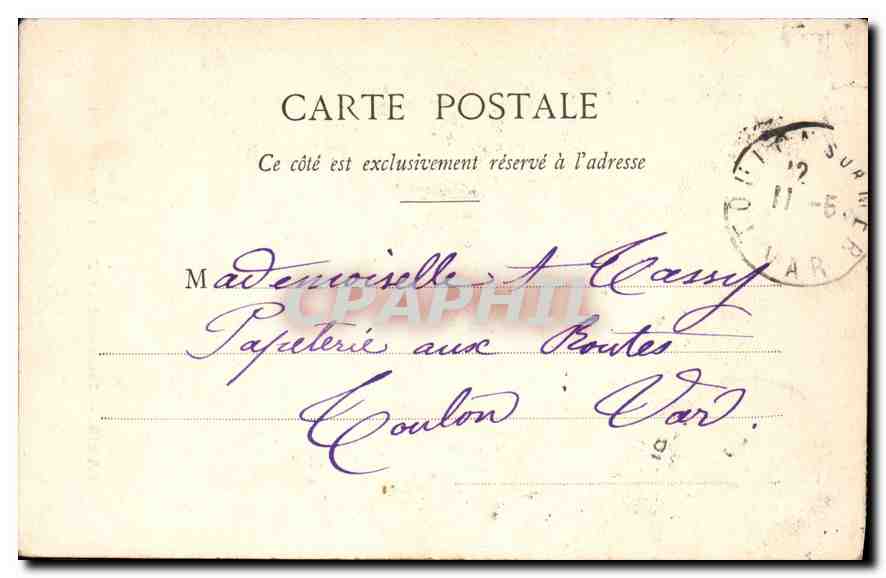 CARTE POSTALE
Ce côté est exclusivement réservé à l'adresse
TOULON SUR MER
12
11 -5
VAR
Mademoiselle A Tassy
Papeterie aux Routes
Toulon Var.
CPAPHIL